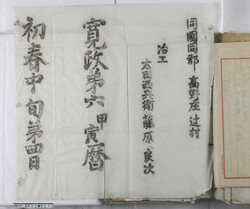 同國同郡 高野庄辻村
冶工
太田西兵衛藤原
良次
寛政第六甲寅曆
初春中旬第四日